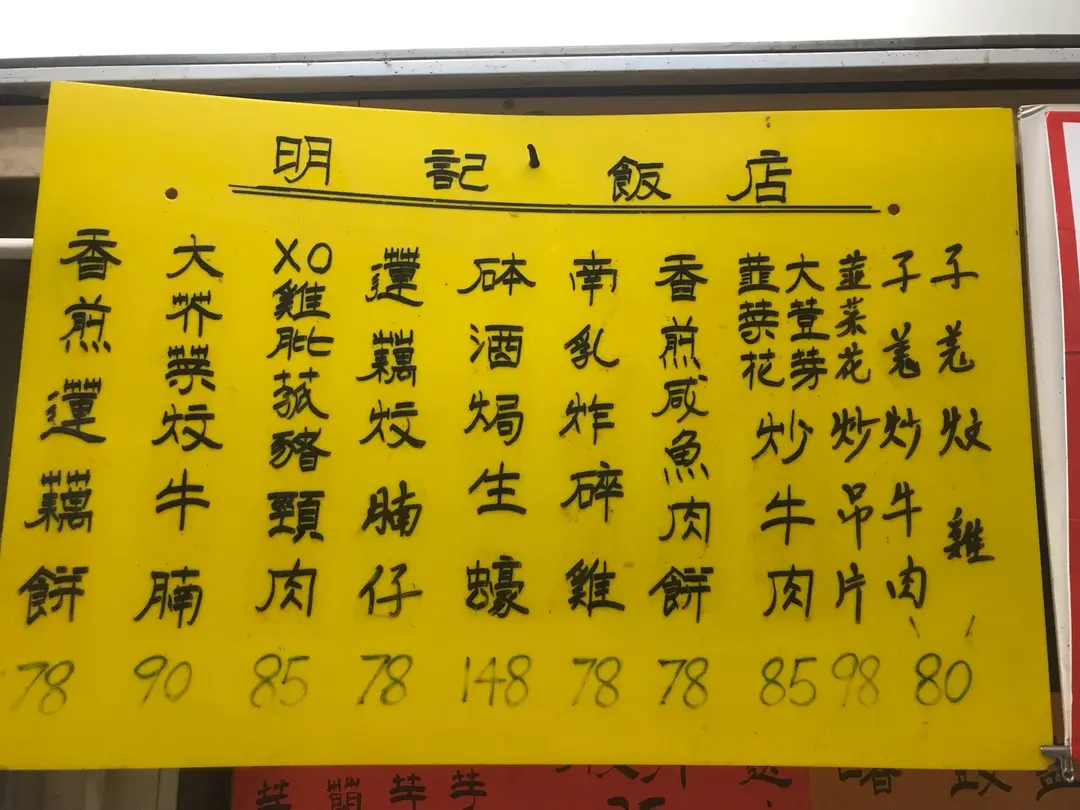 明記飯店
子羗炆雞
子羗炒牛肉
80
韮菜花炒吊片
98
大荳芽
韮菜花
炒牛肉
85
香煎咸魚肉餅
78
南乳炸碎雞
78
砵酒焗生蠔
148
蓮藕炆腩仔
78
XO雞肶菰豬頸肉
85
大芥菜炆牛腩
90
香煎蓮藕餅
78